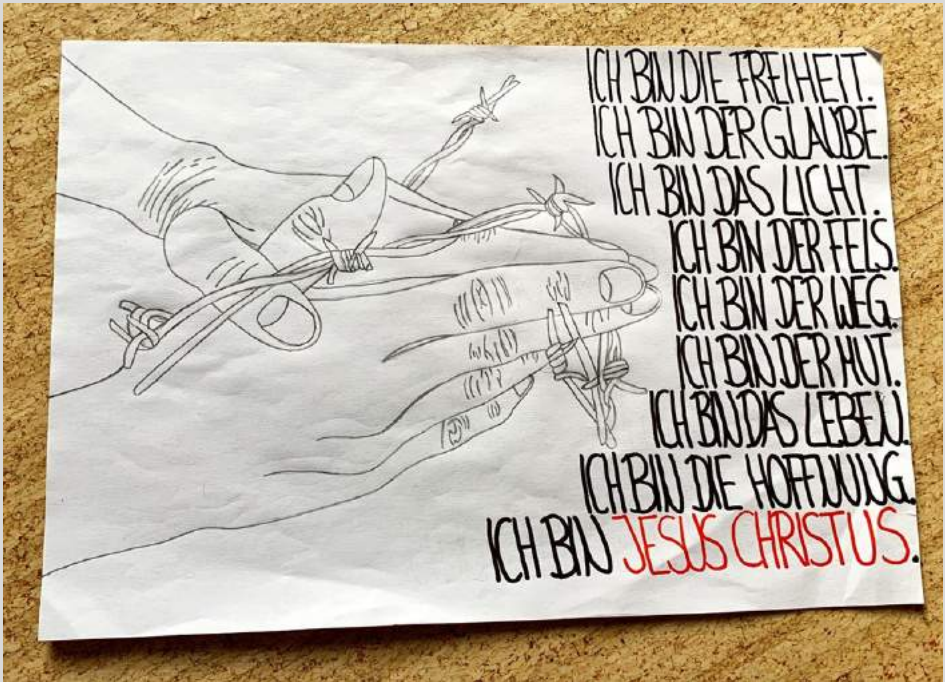 ICH BIN DIE FREIHEIT.
ICH BIN DER GLAUBE.
ICH BIN DAS LICHT.
ICH BIN DER FELS.
ICH BIN DER WEG.
ICH BIN DER MUT.
ICH BIN DAS LEBEN.
ICH BIN DIE HOFFNUNG.
ICH BIN JESUS CHRISTUS.